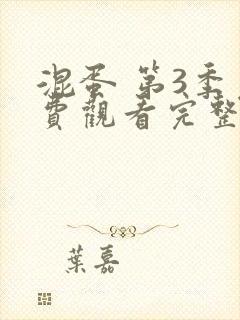 混蛋 第3季
費觀看完整
葉嘉